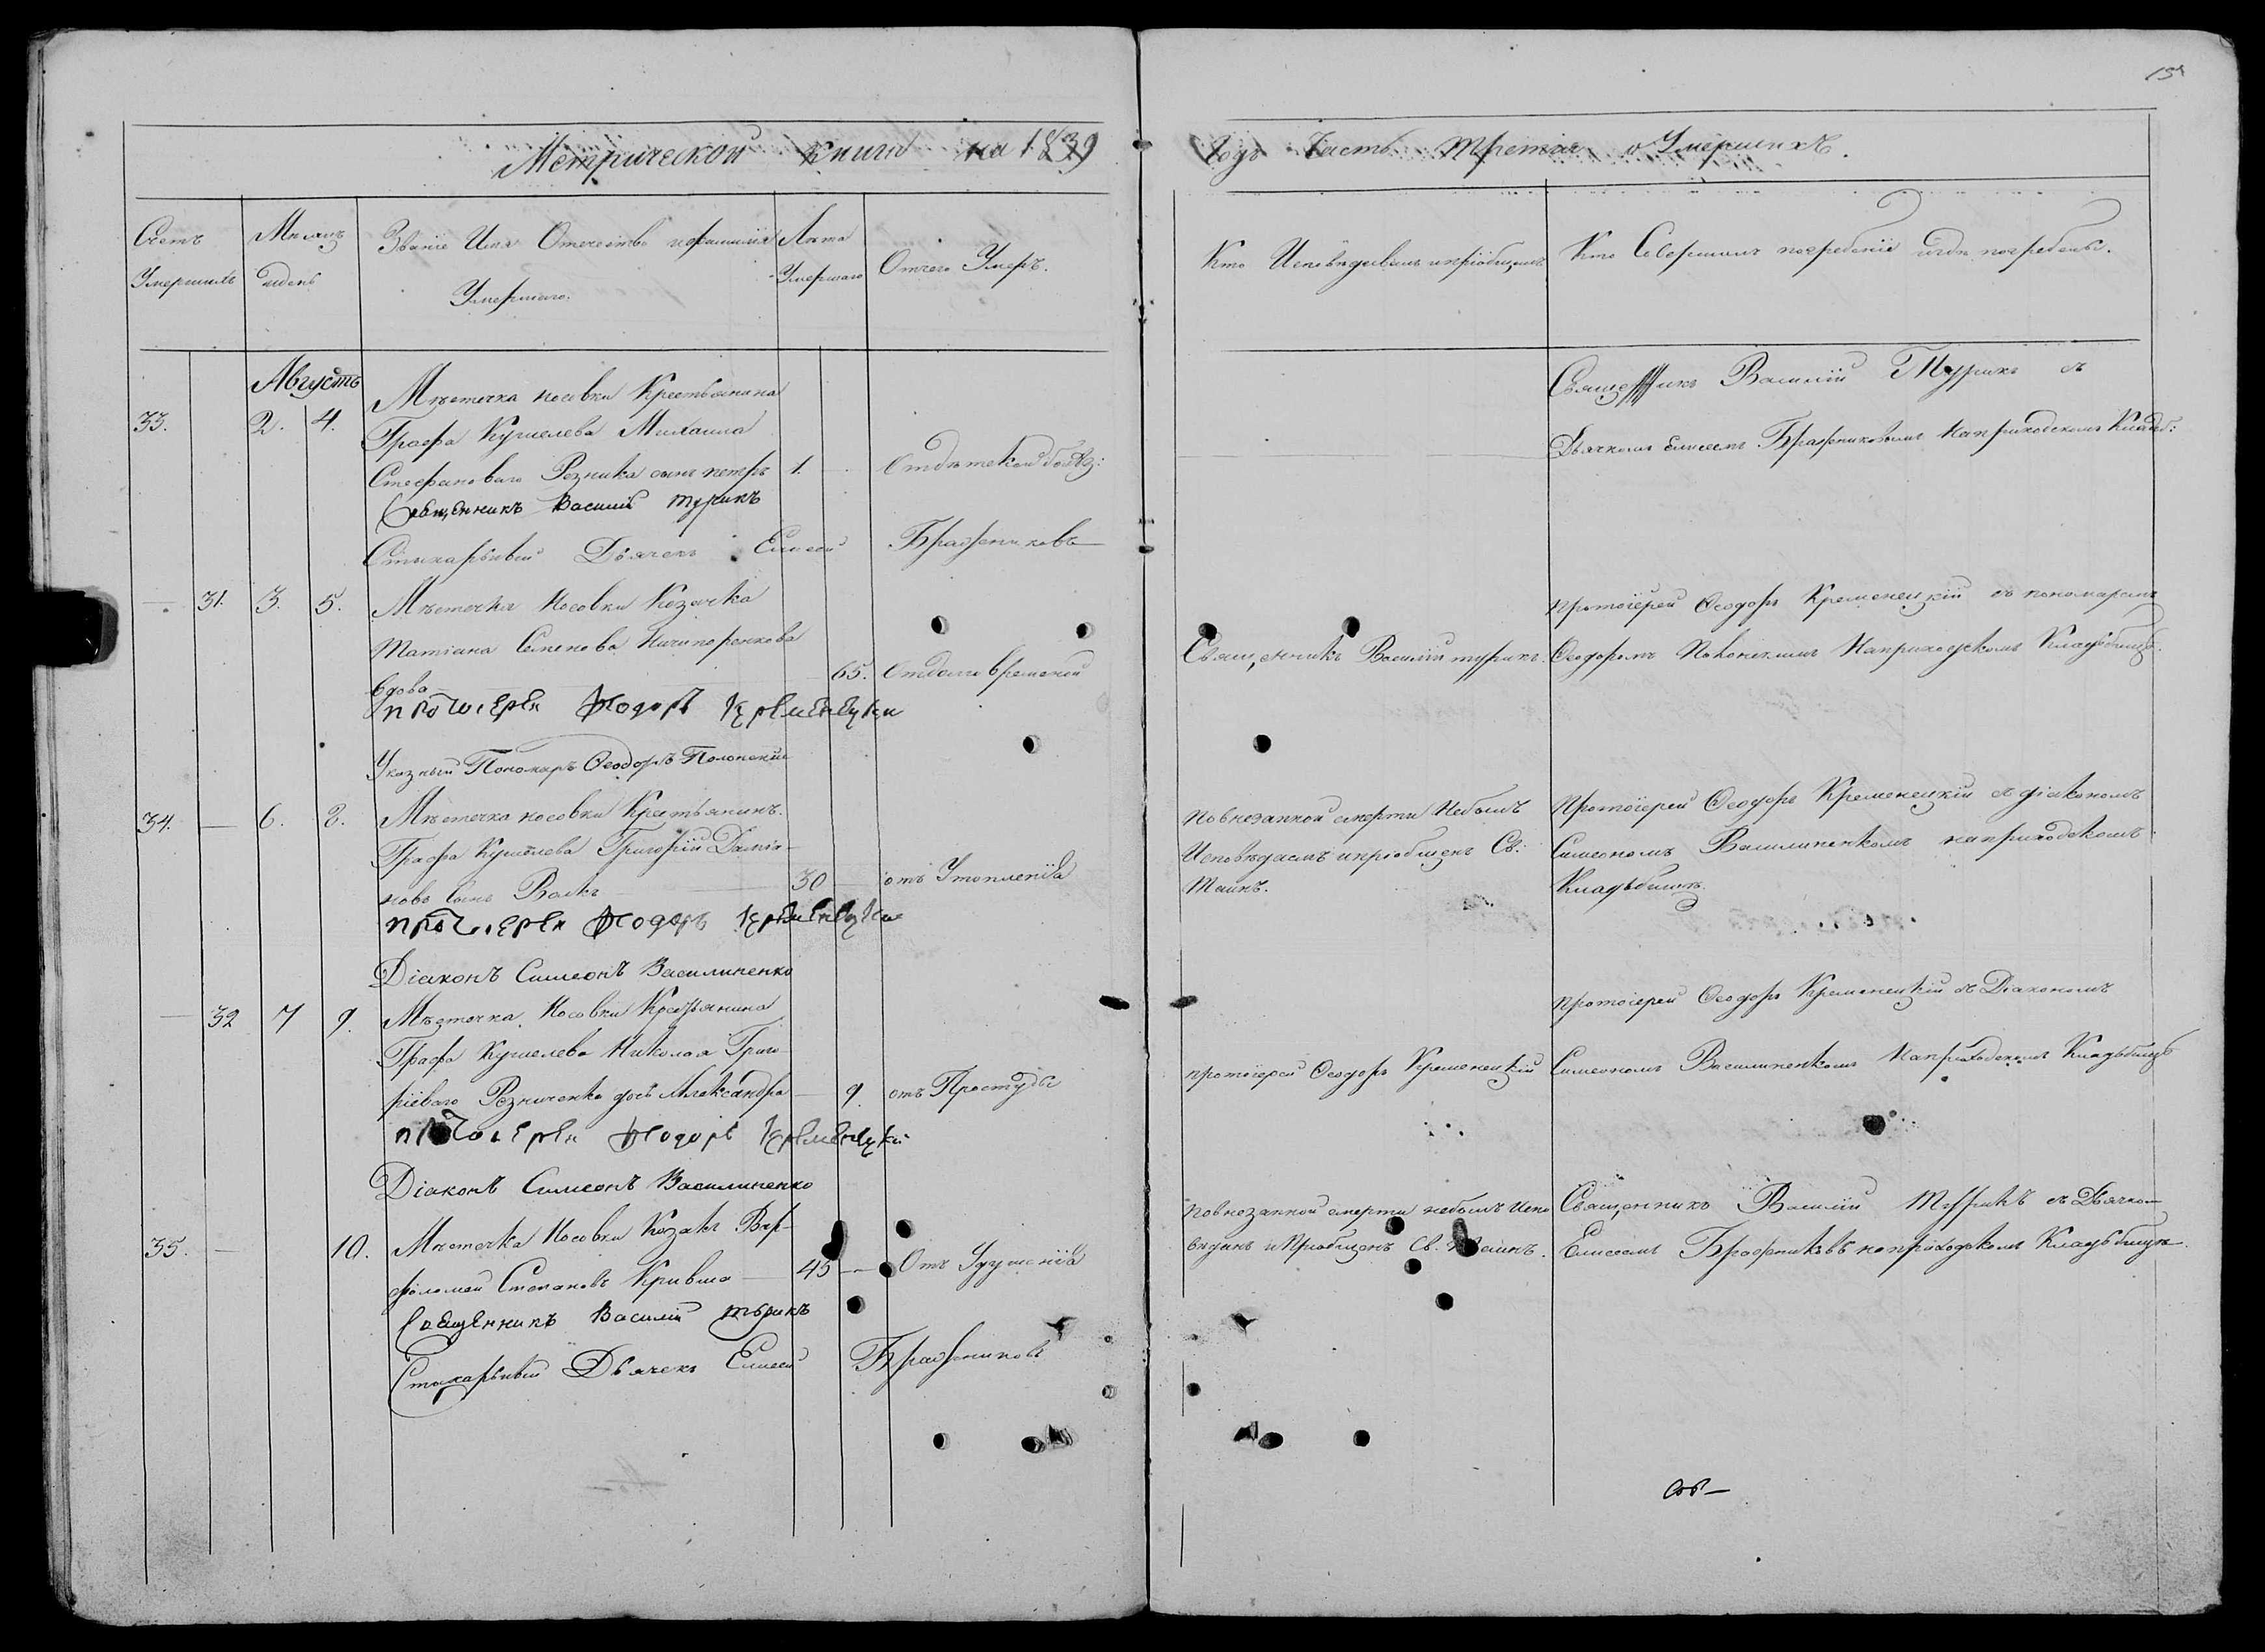 Метрической книги на 1839
Годъ Часть Третія о Умершихъ.
Счетъ Умершихъ
Месяцъ идень
Званіе Имя Отечество ифамилія Умершаго.
Лета Умершаго
Отчего Умеръ.
Кто Исповедывалъ ипріобщалъ
Кто Совершилъ погребеніе игде погребены.
Августъ
33. 2. 4.
Мѣстечка носовки Крестьянина
Графа Кушелева Михаила
Стефановаго Резника сынъ петръ 1. Отдѣтской болѣз:
Священникъ Василій Турикъ
Стихарный Дьячекъ Елисей Бражниковъ
Священникъ Василій Турикъ съ
Дьячкомъ Елисеемъ Бражниковымъ Наприходскомъ Кладб:
31. 3. 5.
Мѣстечка Носовки Козачка
Татіана Семенова Ничипоренкова
вдова 65. Отдолговременной
протоіерей Феодоръ Кременецкій
Указный Пономарь Феодоръ Полонскій
Священникъ Василій турикъ.
протоіерей Феодоръ Кременецкій съ пономаремъ
Феодоромъ Полонскимъ Наприходскомъ Кладбищѣ.
34. — 6. 8.
Мѣстечка носовки Крестьянинъ.
Графа Кушелева Григорій Даміа-
новъ сынъ Валъ 30 отъ Утопленія
протоіерей Феодоръ Кременецкій
Діаконъ Симеонъ Василиненко
Повнезапной смерти Небылъ
Исповѣданъ ипріобщенъ Св:
Таинъ.
Протоіерей Феодоръ Кременецкій съ діакономъ
Симеономъ Василиненкомъ наприходскомъ
Кладъбищѣ.
— 32 7 9.
Мѣстечка Носовки Крестьянина
Графа Кушелева Николая Григо-
ріеваго Резниченка дочь Александра — 9. отъ Простуды
протоіерей Феодоръ Кременецкій
Діаконъ Симеонъ Василиненко
протоіерей Феодоръ Кременецкій
Протоіерей Феодоръ Кременецкій съ Діакономъ
Симеономъ Василиненкомъ Наприходскомъ Кладъбищѣ
35. — 10.
Мѣстечка Носовки Козакъ Вар-
фоломей Стефановъ Кривша 45 — Отъ Удушенія
Священникъ Василій Турикъ
Стихарный Дьячекъ Елисей Бражниковъ
Повнезапной смерти небылъ испо
веданъ иПріобщенъ Св. Таинъ.
Священникъ Василій Турикъ съ Дьячко—
Елисеемъ Бражниковъ наприходскомъ Кладъбищѣ.